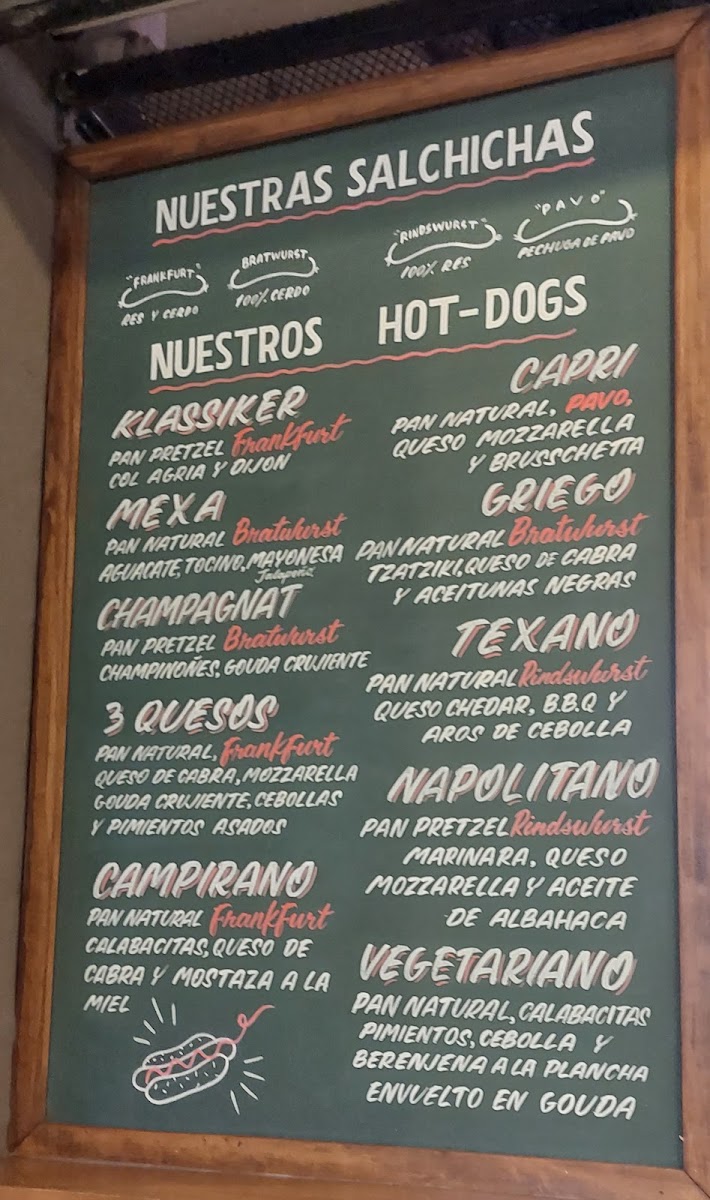 NUESTRAS SALCHICHAS
"FRANKFURT"
RES Y CERDO
BRATWURST
100% CERDO
"RINDSWURST"
100% RES
"PAVO"
PECHUGA DE PAVO
NUESTROS HOT-DOGS
KLASSIKER
PAN PRETZEL Frankfurt
COL AGRIA Y DIJON
MEXA
PAN NATURAL Bratwurst
AGUACATE, TOCINO, MAYONESA
Jalapeño
CHAMPAGNAT
PAN PRETZEL Bratwurst
CHAMPIÑOÑES, GOUDA CRUJIENTE
3 QUESOS
PAN NATURAL, Frankfurt
QUESO DE CABRA, MOZZARELLA
GOUDA CRUJIENTE, CEBOLLAS
Y PIMIENTOS ASADOS
CAMPIRANO
PAN NATURAL Frankfurt
CALABACITAS, QUESO DE
CABRA Y MOSTAZA A LA
MIEL
CAPRI
PAN NATURAL, PAVO,
QUESO MOZZARELLA
Y BRUSSCHETTA
GRIEGO
PAN NATURAL Bratwurst
TZATZIKI, QUESO DE CABRA
Y ACEITUNAS NEGRAS
TEXANO
PAN NATURAL Rindswurst
QUESO CHEDAR, B.B.Q Y
AROS DE CEBOLLA
NAPOLITANO
PAN PRETZEL Rindswurst
MARINARA, QUESO
MOZZARELLA Y ACEITE
DE ALBAHACA
VEGETARIANO
PAN NATURAL, CALABACITAS
PIMIENTOS, CEBOLLA Y
BERENJENA A LA PLANCHA
ENVUELTO EN GOUDA